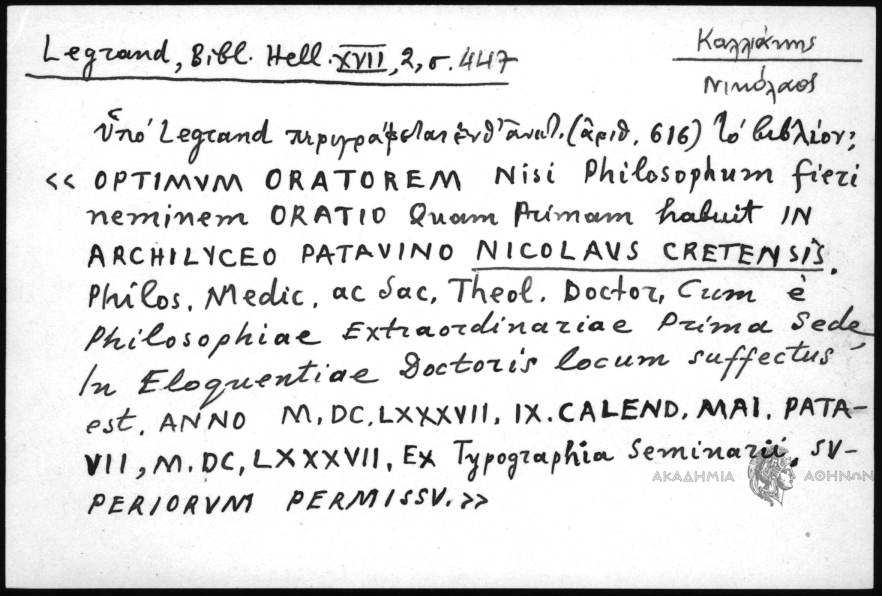 Legrand, Bibl. Hell. XVII, 2, σ. 447
Καλλιάκης
Νικόλαος
ὑπό Legrand περιγράφεται ἐνθ' ἀνωτ. (ἀριθ. 616) τό βιβλίον:
<< OPTIMVM ORATOREM Nisi Philosophum fieri
neminem ORATIO Quam Primam habuit IN
ARCHILYCEO PATAVINO NICOLAVS CRETENSIS.
Philos. Medic. ac Sac. Theol. Doctor, Cum è
Philosophiae Extraordinariae Prima Sede
In Eloquentiae Doctoris locum suffectus
est. ANNO M.DC.LXXXVII, IX. CALEND. MAI. PATA-
VII, M.DC,LXXXVII, Ex Typographia Seminarii. SV-
PERIORVM PERMISSV. >>
ΑΚΑΔΗΜΙΑ ΑΘΗΝΩΝ